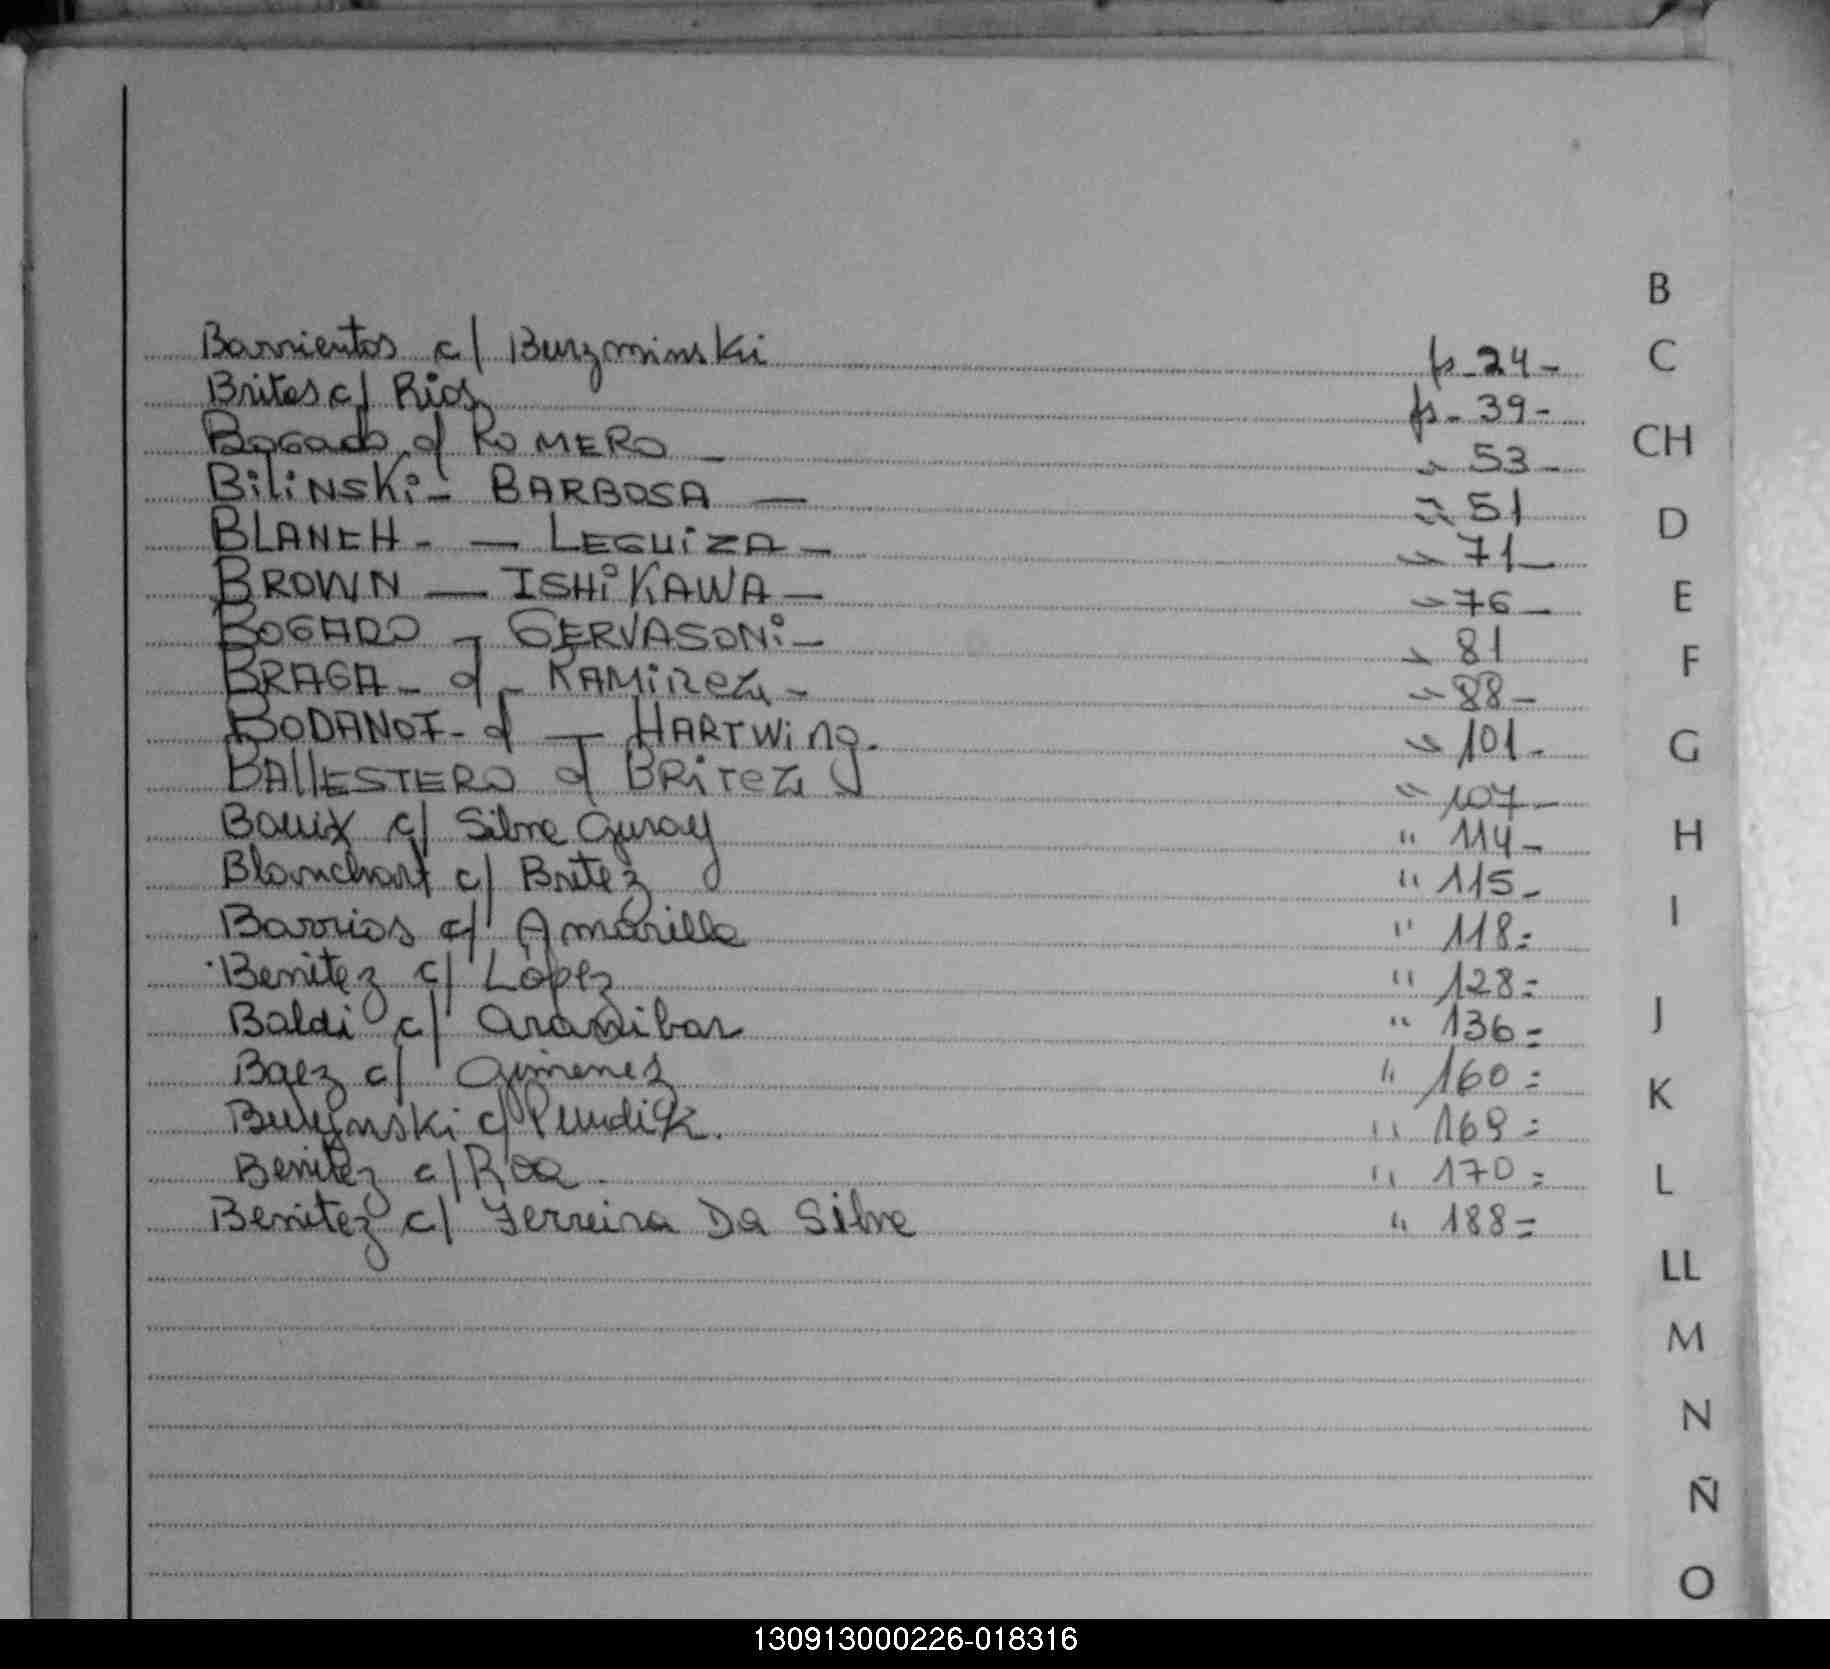 B
Barrientos c/ Burzminski fs - 24 -
C
Brites c/ Rios fs - 39 -
Bogado c/ ROMERO - " 53 -
CH
BiliNSKi - BARBOSA — " 51
D
BLANCH - — LEGUiZA - " 71 -
BROWN — ISHiKAWA - " 76 -
E
BOGADO - GERVASONi - " 81
F
BRAGA - c/ - RAMiRez - " 88 -
BODANOI - c/ — HARTWing. " 101 -
G
BAllESTERO c/ BRiTez " 107 -
Bouix c/ Silva Guray " 114 -
H
Blanchart c/ Britez " 115 -
I
Barrios c/ Amarilla " 118 =
Benitez c/ López " 128 =
J
Baldi c/ Aranibar " 136 =
Baez c/ Gimenez " 160 =
K
c/ " 169 =
Benitez c/ Roa . " 170 =
L
Benitez c/ Ferreira Da Silva " 188 =
LL
M
N
Ñ
O
130913000226-018316